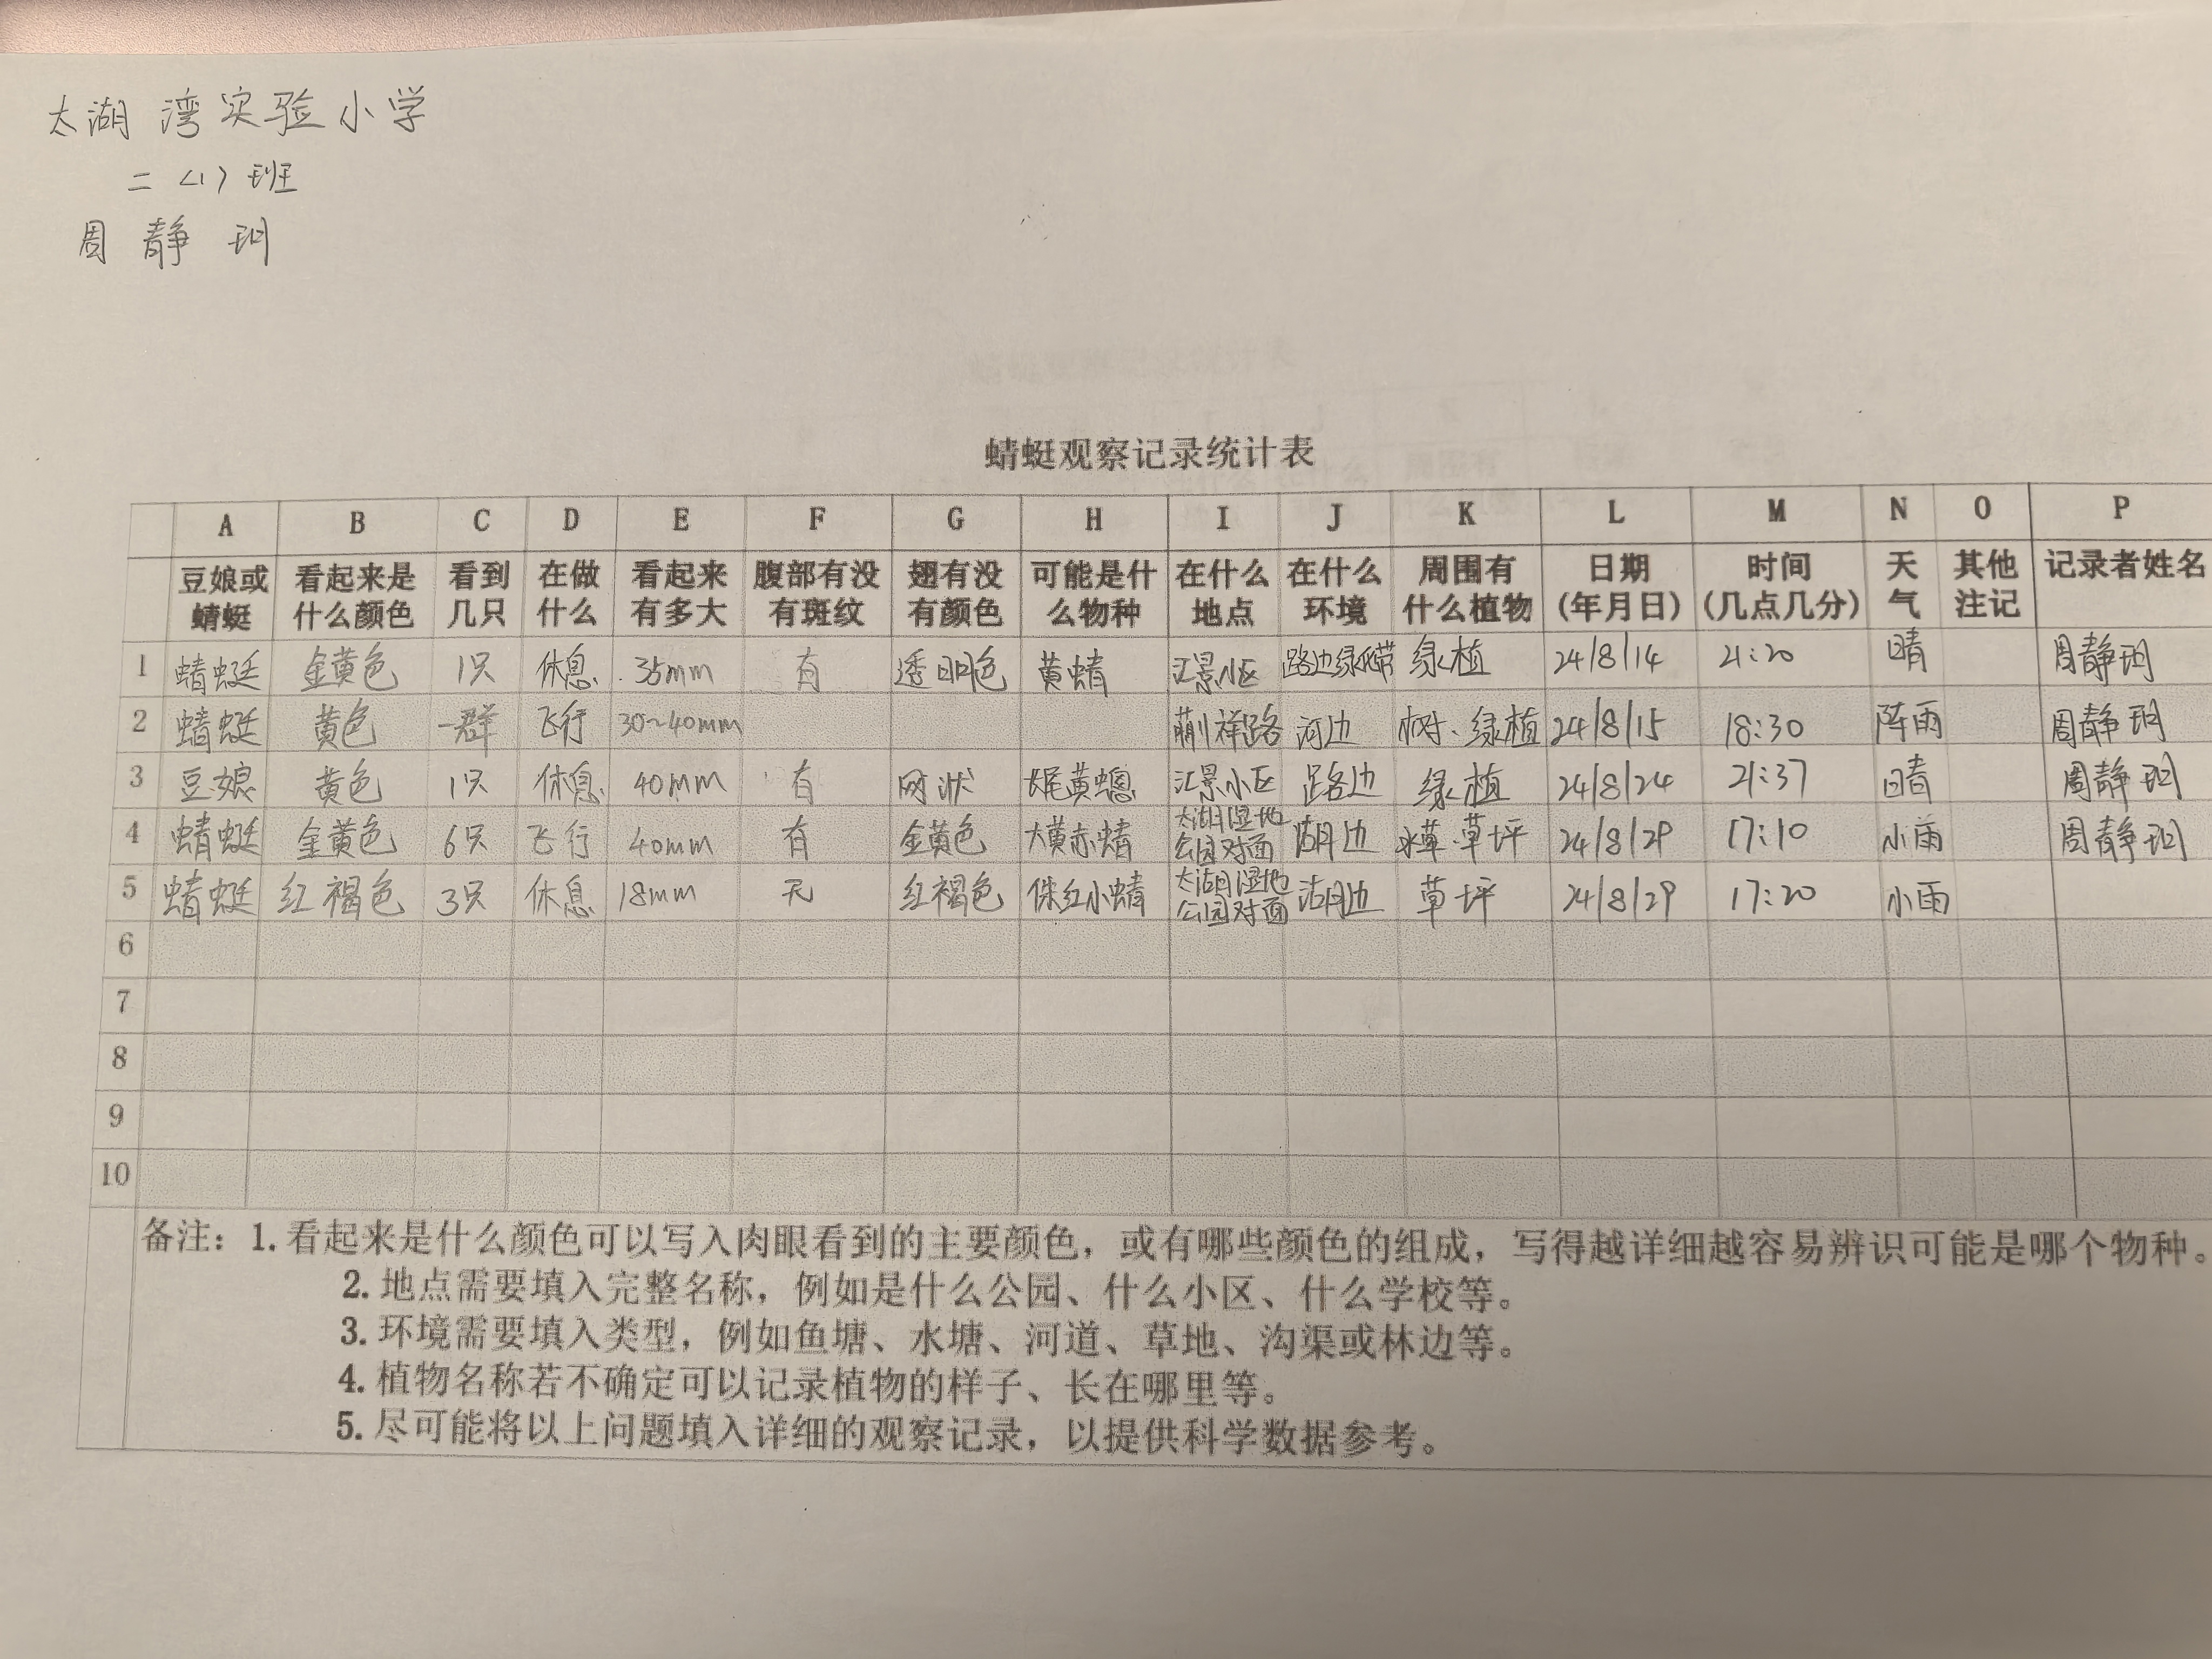 太湖湾实验小学
二〈1〉班
周静玥
蜻蜓观察记录统计表
A B C D E F G H I J K L M N O P
豆娘或蜻蜓 看起来是什么颜色 看到几只 在做什么 看起来有多大 腹部有没有斑纹 翅有没有颜色 可能是什么物种 在什么地点 在什么环境 周围有什么植物 日期(年月日) 时间(几点几分) 天气 其他注记 记录者姓名
1 蜻蜓 金黄色 1只 休息 35mm 有 透明色 黄蜻 汇景小区 路边绿化带 绿植 24/8/14 21:20 晴 周静玥
2 蜻蜓 黄色 一群 飞行 30~40mm 祥路 河边 树、绿植 24/8/15 18:30 阵雨 周静玥
3 豆娘 黄色 1只 休息 40mm 有 网状 长尾黄蟌 汇景小区 路边 绿植 24/8/24 21:37 晴 周静玥
4 蜻蜓 金黄色 6只 飞行 40mm 有 金黄色 大黄赤蜻 太湖湿地公园对面 湖边 水草、草坪 24/8/29 17:10 小雨 周静玥
5 蜻蜓 红褐色 3只 休息 18mm 无 红褐色 侏红小蜻 太湖湿地公园对面 湖边 草坪 24/8/29 17:20 小雨
6
7
8
9
10
备注：1.看起来是什么颜色可以写入肉眼看到的主要颜色，或有哪些颜色的组成，写得越详细越容易辨识可能是哪个物种。
2.地点需要填入完整名称，例如是什么公园、什么小区、什么学校等。
3.环境需要填入类型，例如鱼塘、水塘、河道、草地、沟渠或林边等。
4.植物名称若不确定可以记录植物的样子、长在哪里等。
5.尽可能将以上问题填入详细的观察记录，以提供科学数据参考。